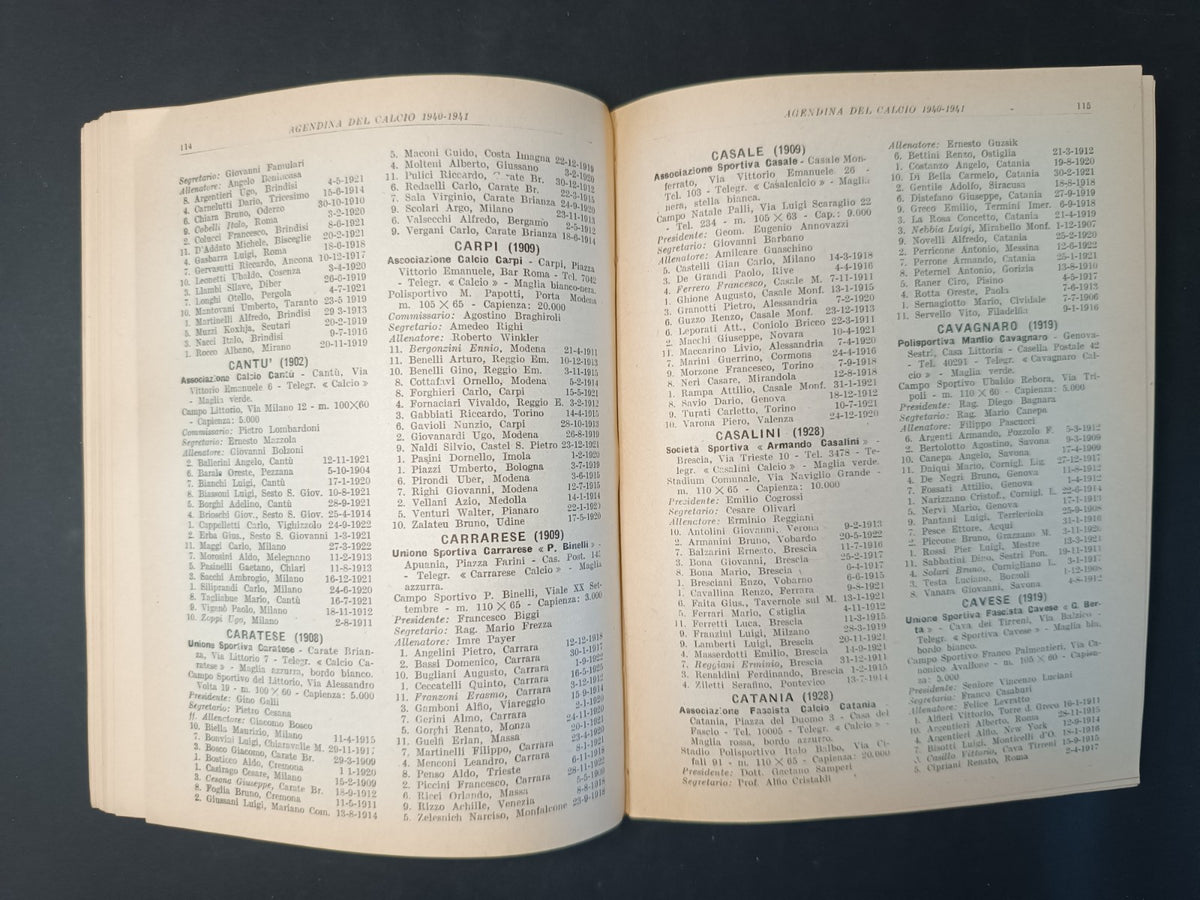 114
AGENDINA DEL CALCIO 1940-1941
Segretario: Giovanni Famulari
Allenatore: Angelo Benincasa
8. Argentieri Ugo, Brindisi 4-5-1921
4. Carnelutti Dario, Tricesimo 15-6-1914
6. Chiara Bruno, Oderzo 30-10-1910
9. Cobelli Italo, Roma 3-2-1920
2. Colucci Francesco, Brindisi 8-6-1921
11. D'Addato Michele, Bisceglie 20-2-1921
4. Gasbarra Luigi, Roma 18-6-1918
7. Gervasutti Riccardo, Ancona 10-12-1917
10. Leonetti Ubaldo, Cosenza 3-4-1920
3. Llambi Sllave, Diber 26-6-1919
7. Longhi Otello, Pergola 4-7-1921
10. Mantovani Umberto, Taranto 23-5 1919
1. Martinelli Alfredo, Brindisi 29 3-1913
5. Muzzi Koxhja, Scutari 20-2-1919
3. Nacci Italo, Brindisi 9-7-1916
1. Rocco Albano, Mirano 20-11-1919
CANTU' (1902)
Associazione Calcio Cantù - Cantù, Via
Vittorio Emanuele 6 - Telegr. « Calcio »
- Maglia verde.
Campo Littorio, Via Milano 12 - m. 100X60
- Capienza: 5.000
Commissario: Pietro Lombardoni
Segretario: Ernesto Mazzola
Allenatore: Giovanni Bolzoni
2. Ballerini Angelo, Cantù 12-11-1921
6. Barale Oreste, Pezzana 5-10-1904
7. Bianchi Luigi, Cantù 17-1-1920
8. Biassoni Luigi, Sesto S. Giov. 19-8-1921
5. Borghi Adelino, Cantù 28-9-1921
4. Brioschi Giov., Sesto S. Giov. 25-4-1914
1. Cappelletti Carlo, Vighizzolo 24-9-1922
2. Erba Gius., Sesto S. Giovanni 1-3-1921
11. Maggi Carlo, Milano 27-3-1922
7. Morosini Aldo, Melegnano 11-2-1913
5. Pasinelli Gaetano, Chiari 11-8-1913
3. Sacchi Ambrogio, Milano 16-12-1921
1. Siliprandi Carlo, Milano 24-6-1920
8. Tagliabue Mario, Cantù 16-7-1921
9. Viganò Paolo, Milano 18-11-1912
10. Zoppi Ugo, Milano 2-8-1911
CARATESE (1908)
Unione Sportiva Caratese - Carate Brian-
za, Via Littorio 7 - Telegr. « Calcio Ca-
ratese » - Maglia azzurra, bordo bianco.
Campo Sportivo del Littorio, Via Alessandro
Volta 19 - m. 100 X 60 - Capienza: 5.000
Presidente: Gino Galli
Segretario: Pietro Cesana
ff. Allenatore: Giacomo Bosco
10. Biella Maurizio, Milano 11-4-1915
7. Bonvini Luigi, Chiaravalle M. 29-11-1917
3. Bosco Giacomo, Carate Br. 29-3-1909
1. Bosticco Aldo, Cremona 1 1-1920
1. Casirago Cesare, Milano 15-2-1909
3. Cesana Giuseppe, Carate Br. 18-9-1912
8. Foglia Bruno, Cremona 11-5-1911
2. Giussani Luigi, Mariano Com. 13-8-1914
5. Maconi Guido, Costa Imagna 22-12-1919
4. Molteni Alberto, Giussano 3-2-1920
11. Pulici Riccardo, Carate Br. 30-12-1912
6. Redaelli Carlo, Carate Br. 22-3-1915
7. Sala Virginio, Carate Brianza 24-9-1920
9. Scolari Argo, Milano 23-11-1913
6. Valsecchi Alfredo, Bergamo 2-5-1912
9. Vergani Carlo, Carate Brianza 18-6-1914
CARPI (1909)
Associazione Calcio Carpi - Carpi, Piazza
Vittorio Emanuele, Bar Roma - Tel. 7042
- Telegr. « Calcio » - Maglia bianco-nera.
Polisportivo M. Papotti, Porta Modena
m. 105 X 65 - Capienza: 20.000
Commissario: Agostino Braghiroli
Segretario: Amedeo Righi
Allenatore: Roberto Winkler
11. Bergonzini Ennio, Modena 21-4-1911
11. Benelli Arturo, Reggio Em. 13-11-1915
10. Benelli Gino, Reggio Em. 3-11-1915
8. Cottafavi Ornello, Modena 5-2-1914
8. Forghieri Carlo, Carpi 15-5-1921
4. Fornaciari Vivaldo, Reggio E. 3-2-1912
3. Gabbiati Riccardo, Torino 14-4-1915
6. Gavioli Nunzio, Carpi 28-10-1913
2. Giovanardi Ugo, Modena 26-8-1919
9. Naldi Silvio, Castel S. Pietro 23-12-1921
1. Pasini Dornello, Imola 1-2-1920
1. Piazzi Umberto, Bologna 3-7-1919
6. Pirondi Uber, Modena 3-6-1915
7. Righi Giovanni, Modena 12-7-1915
2. Vellani Azio, Medolla 14-1-1914
5. Venturi Walter, Pianaro 22-1-1920
10. Zalateu Bruno, Udine 17-5-1920
CARRARESE (1909)
Unione Sportiva Carrarese « P. Binelli » -
Apuania, Piazza Farini - Cas. Post. 145
- Telegr. « Carrarese Calcio » - Maglia
azzurra.
Campo Sportivo P. Binelli, Viale XX Set-
tembre - m. 110 X 65 - Capienza: 3.000
Presidente: Francesco Biggi
Segretario: Rag. Mario Frezza
Allenatore: Imre Payer
1. Angelini Pietro, Carrara 12-12-1918
2. Bassi Domenico, Carrara 30-1-1917
10. Bugliani Augusto, Carrara 1-9-1922
1. Ceccatelli Quinto, Carrara 16-5-1925
11. Franzoni Erasmo, Carrara 3-12-1912
3. Gamboni Alfio, Viareggio 15-9-1914
7. Gerini Almo, Carrara 2-1-1920
5. Gorghi Renato, Monza 24-11-1920
11. Guelfi Erlan, Massa 20-1-1921
7. Martinelli Filippo, Carrara 23-4-1920
4. Menconi Leandro, Carrara 8-1-1921
8. Penso Aldo, Trieste 6-11-1918
2. Piccini Francesco, Carrara 28-11-1922
6. Ricci Orlando, Massa 5-5-1909
9. Rizzo Achille, Venezia 8-8-1918
5. Zelesnich Narciso, Monfalcone 23-9-1918
AGENDINA DEL CALCIO 1940-1941
115
CASALE (1909)
Associazione Sportiva Casale - Casale Mon-
ferrato, Via Vittorio Emanuele 26 -
Tel. 103 - Telegr. « Casalcalcio » - Maglia
nera, stella bianca.
Campo Natale Palli, Via Luigi Scaraglio 22
- Tel. 234 - m. 105 X 63 - Cap.: 9.000
Presidente: Geom. Eugenio Annovazzi
Segretario: Giovanni Barbano
Allenatore: Amilcare Guaschino
5. Castelli Gian Carlo, Milano 14-3-1918
3. De Grandi Paolo, Rive 4-4-1916
4. Ferrero Francesco, Casale M. 7-11-1911
1. Ghione Augusto, Casale Monf. 13-1-1915
3. Granotti Pietro, Alessandria 7-2-1920
6. Guzzo Renzo, Casale Monf. 23-12-1913
6. Leporati Att., Coniolo Bricco 22-3-1911
2. Macchi Giuseppe, Novara 10-4-1921
11. Maccarino Livio, Alessandria 7-4-1920
7. Marini Guerrino, Cormons 24-4-1916
9. Morzone Francesco, Torino 7-9-1918
8. Neri Casare, Mirandola 12-8-1918
1. Rampa Attilio, Casale Monf. 31-1-1921
8. Savio Dario, Genova 18-12-1912
9. Turati Carletto, Torino 10-7-1921
10. Varona Piero, Valenza 24-12-1920
CASALINI (1928)
Società Sportiva « Armando Casalini » -
Brescia, Via Trieste 10 - Tel. 3478 - Te-
legr. « Casalini Calcio » - Maglia verde.
Stadium Comunale, Via Naviglio Grande -
m. 110 X 65 - Capienza: 10.000
Presidente: Emilio Cogrossi
Segretario: Cesare Olivari
Allenatore: Erminio Reggiani
10. Antolini Giovanni, Verona 9-2-1913
2. Armanini Bruno, Vobardo 20-5-1922
7. Balzarini Ernesto, Brescia 11-7-1916
3. Bona Giovanni, Brescia 25-2-1917
8. Bona Mario, Brescia 6-4-1917
1. Bresciani Enzo, Vobarno 6-6-1915
1. Cavallina Renzo, Ferrara 9-8-1921
6. Faita Gius., Tavernole sul M. 13-1-1921
5. Ferrari Mario, Cstiglia 4-11-1912
11. Ferretti Luca, Brescia 11-3-1915
9. Franzini Luigi, Milzano 28-3-1919
9. Lamberti Luigi, Brescia 20-11-1921
4. Masserdotti Emilio, Brescia 14-9-1921
7. Reggiani Erminio, Brescia 31-12-1911
3. Renaldini Ferdinando, Brescia 1-2-1915
4. Ziletti Serafino, Pontevico 13-7-1914
CATANIA (1928)
Associazione Fascista Calcio Catania -
Catania, Piazza del Duomo 3 - Casa del
Fascio - Tel. 10005 - Telegr. « Calcio » -
Maglia rossa, bordo azzurro.
Stadio Polisportivo Italo Balbo, Via Ci-
fali 91 - m. 110 X 65 - Capienza: 20.000
Presidente: Dott. Gaetano Samperi
Segretario: Prof. Alfio Cristaldi
Allenatore: Ernesto Guzsik
6. Bettini Renzo, Ostiglia 21-3-1912
1. Costanzo Angelo, Catania 19-8-1920
10. Di Bella Carmelo, Catania 30-2-1921
2. Gentile Adolfo, Siracusa 18-8-1918
6. Distefano Giuseppe, Catania 27-9-1919
9. Greco Emilio, Termini Imer. 6-9-1918
3. La Rosa Concetto, Catania 21-4-1919
3. Nebbia Luigi, Mirabello Monf. 1-12-1907
9. Novelli Alfredo, Catania 25-2-1920
2. Perricone Antonio, Messina 12-6-1922
7. Perrone Armando, Catania 25-1-1921
8. Peternel Antonio, Gorizia 13-8-1910
5. Raner Ciro, Pisino 4-5-1917
4. Rotta Oreste, Paola 7-6-1913
1. Sernagiotto Mario, Cividale 7-7-1906
11. Servello Vito, Filadelfia 9-1-1916
CAVAGNARO (1919)
Polisportiva Manlio Cavagnaro - Genova-
Sestri, Casa Littoria - Casella Postale 42
- Tel. 40291 - Telegr. « Cavagnaro Cal-
cio » - Maglia verde.
Campo Sportivo Ubaldo Rebora, Via Tri-
poli - m. 110 X 60 - Capienza: 5.000
Presidente: Rag. Diego Bagnara
Segretario: Rag. Mario Canepa
Allenatore: Filippo Pascucci
6. Argenti Armando, Pozzolo F. 5-3-1912
2. Bertolotto Agostino, Savona 9-3-1909
10. Canepa Angelo, Savona 17-4-1909
11. Daiqui Mario, Cornigl. Lig. 27-12-1917
4. De Negri Bruno, Genova 11-8-1912
7. Fossati Attilio, Genova 1-4-1912
1. Narizzano Cristof., Cornigl. L. 22-6-1914
5. Nervi Mario, Genova 17-1-1913
9. Pantani Luigi, Terricciola 25-9-1908
7. Pesce Ettore, Acqui 31-1-1916
2. Piccone Bruno, Grazzano M. 2-11-1920
1. Rossi Pier Luigi, Mestre 13-3-1921
11. Sabbatini Dino, Sestri Pon. 19-11-1917
4. Solari Bruno, Cornigliano L. 3-1-1917
3. Testa Luciano, Borzoli 1-12-1908
8. Vanara Giovanni, Savona 4-8-1912
CAVESE (1919)
Unione Sportiva Fascista Cavese « G. Ber-
ta » - Cava dei Tirreni, Via Balzico -
Telegr. « Sportiva Cavese » - Maglia blu,
bordo bianco.
Campo Sportivo Franco Palmentieri, Via Ca-
nonico Avallone - m. 105 X 60 - Capien-
za: 5.000
Presidente: Seniore Vincenzo Luciani
Segretario: Franco Casaburi
Allenatore: Felice Levratto
1. Alfieri Vittorio, Torre d. Greco 16-1-1911
10. Argentieri Alberto, Roma 28-11-1915
4. Argentieri Alfio, New York 12-9-1914
7. Bisotti Luigi, Monticelli d'O. 18-1-1916
3. Casillo Vittorio, Cava Tirreni 15-9-1915
5. Cipriani Renato, Roma 2-4-1917